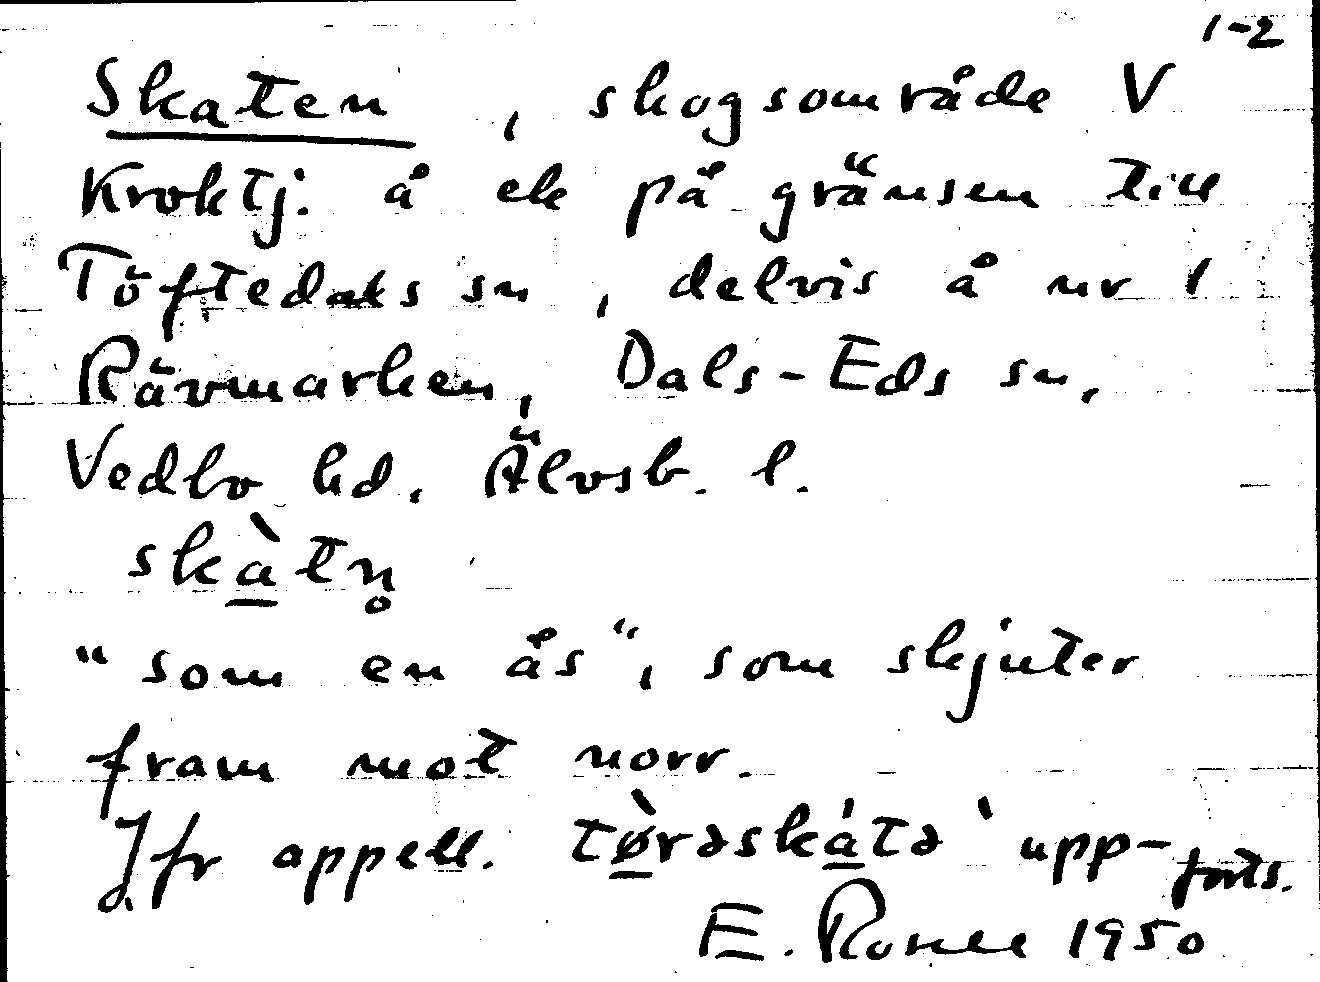 1-2
Skaten, skogsområde V
Kroktj. å ek på gränsen till
Töftedals sn, delvis å nr 1
Rävmarken, Dals-Eds sn,
Vedbo hd. Älvsb. l.
skà̱tn̥
"som en ås", som skjuter
fram mot norr.
Jfr appell. tø̱̀rəská̱tə ' upp-
forts.
E. 1950